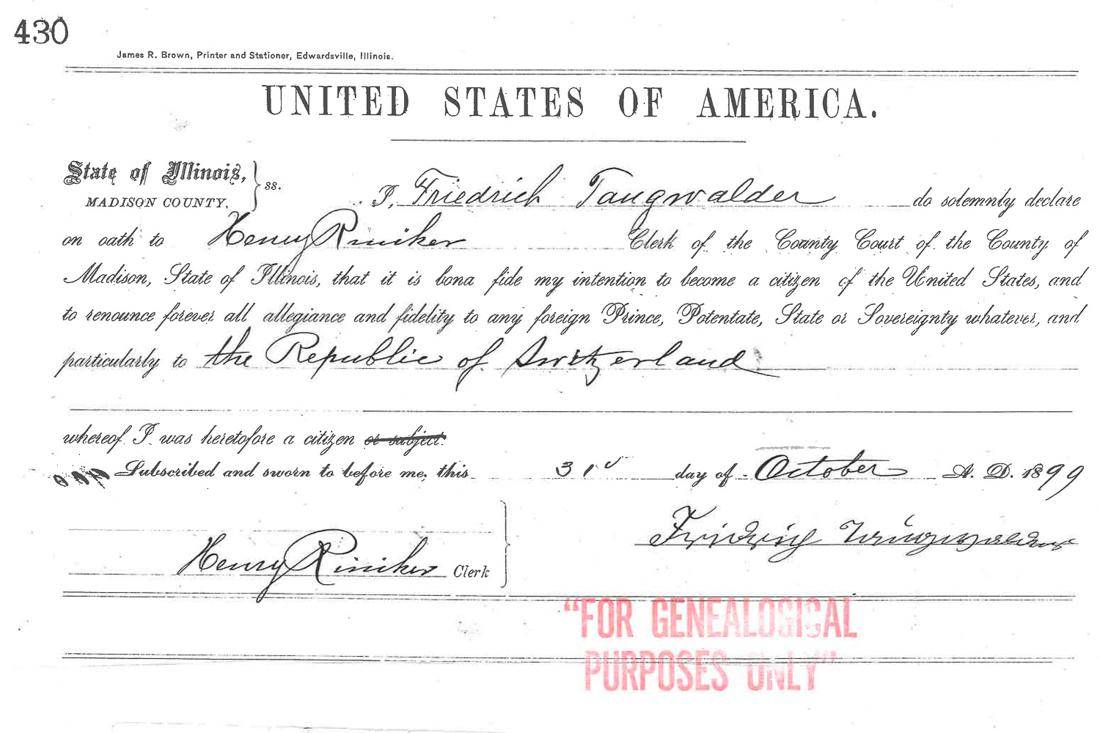 430
James R. Brown, Printer and Stationer, Edwardsville, Illinois.
UNITED STATES OF AMERICA.
State of Illinois,
MADISON COUNTY. } ss. I, Friedrich Taugwalder do solemnly declare
on oath to Henry Riniker Clerk of the County Court of the County of
Madison, State of Illinois, that it is bona fide my intention to become a citizen of the United States, and
to renounce forever all allegiance and fidelity to any foreign Prince, Potentate, State or Sovereignty whatever, and
particularly to the Republic of Switzerland
whereof I was heretofore a citizen or subject.
Subscribed and sworn to before me, this 31 day of October A. D. 1899
Friedrich Taugwalder
Henry Riniker Clerk
"FOR GENEALOGICAL
PURPOSES ONLY"